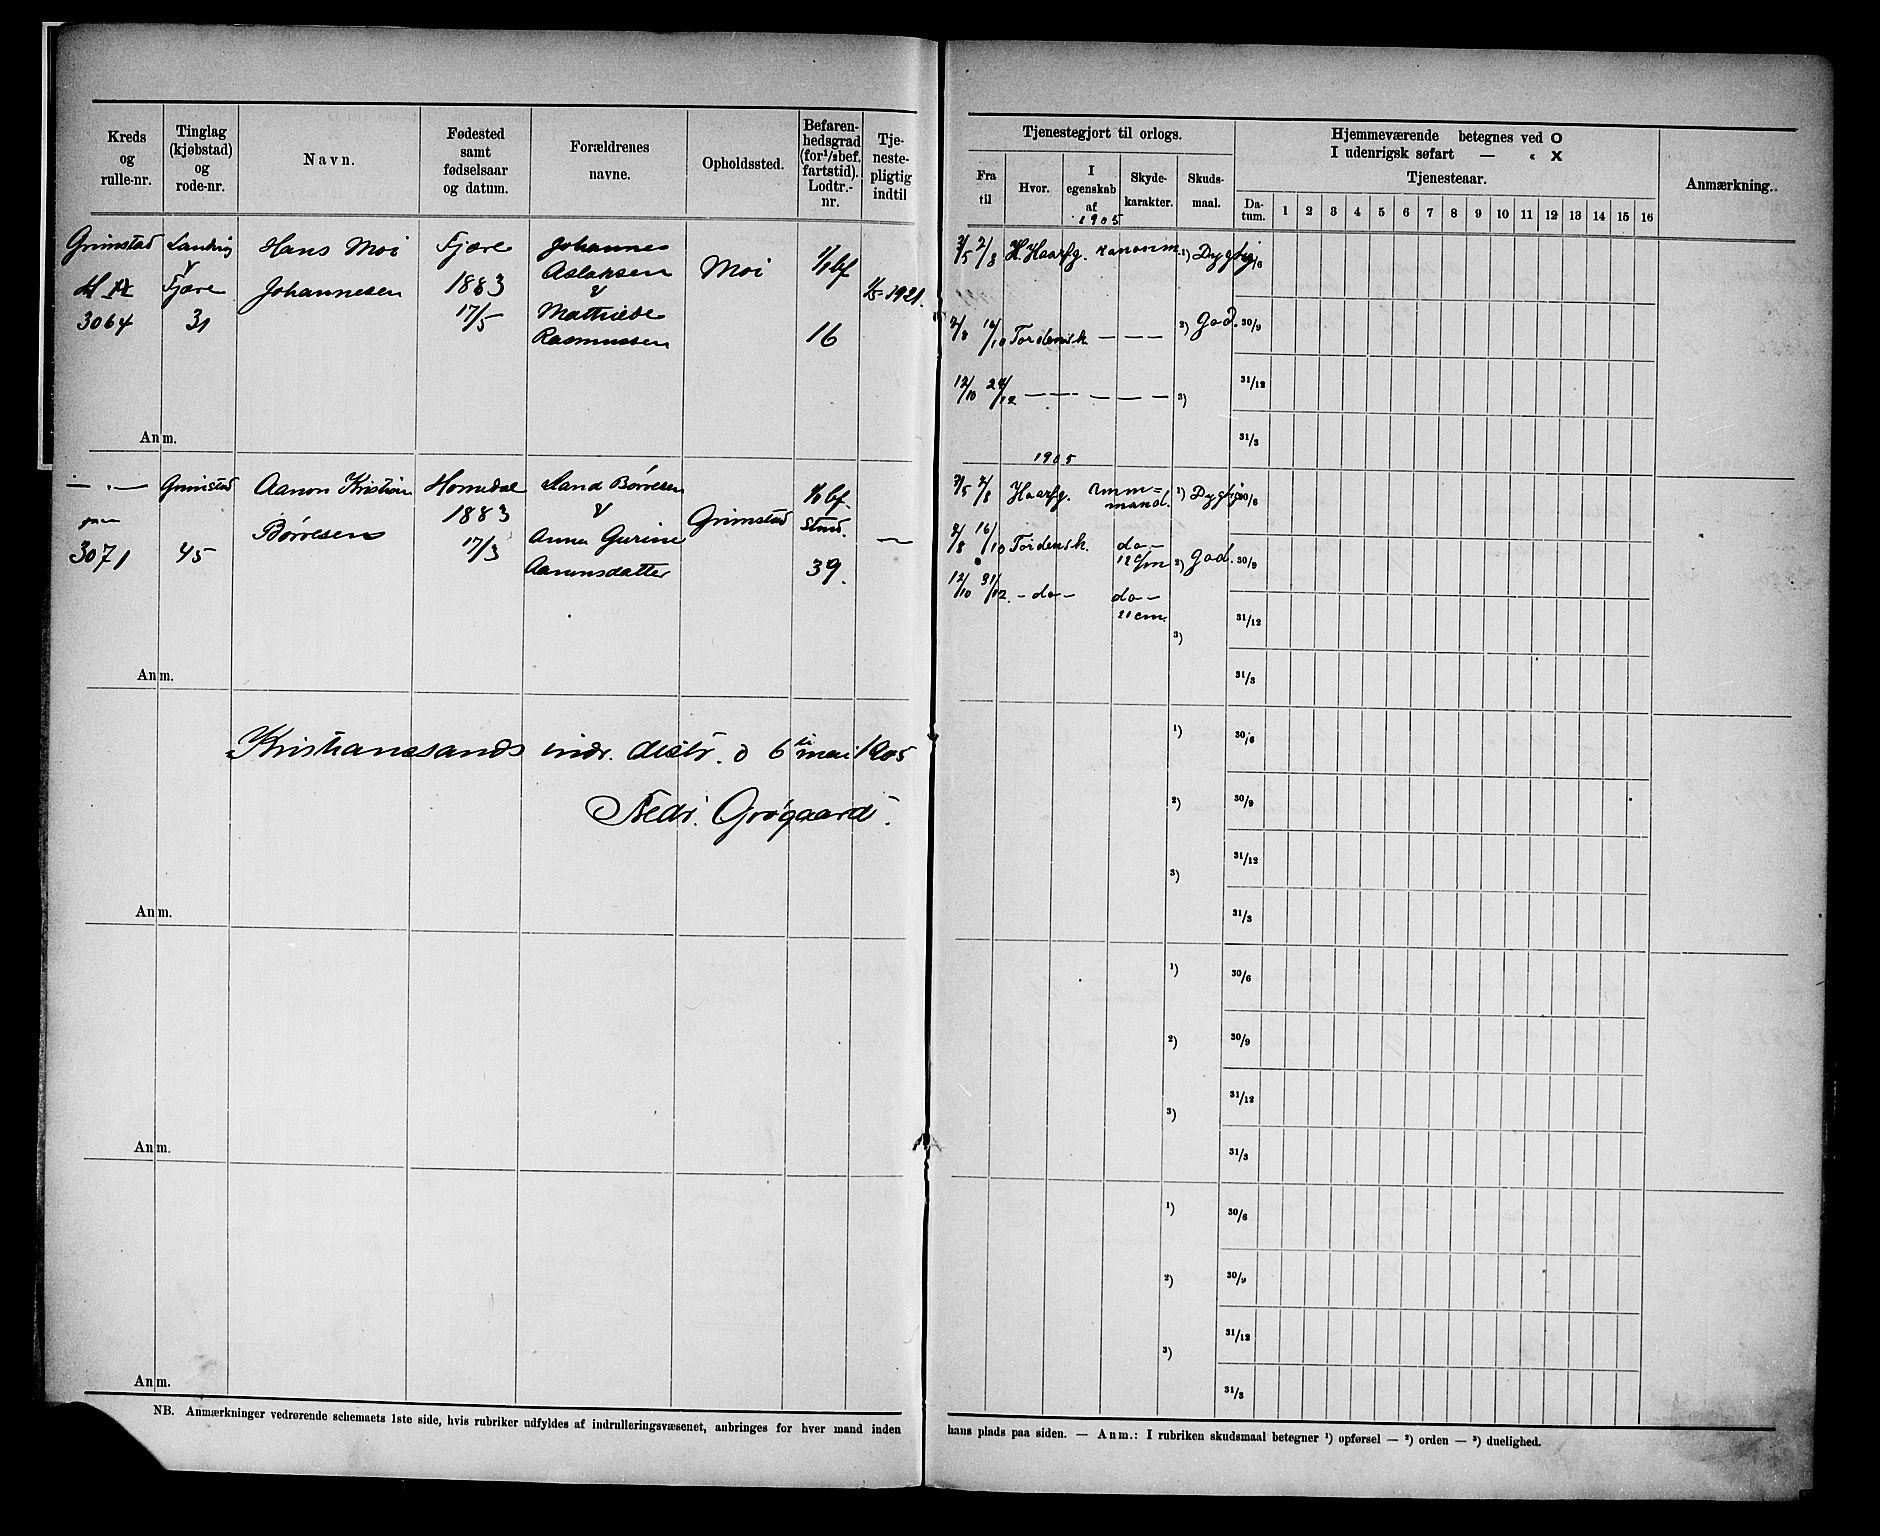 Kreds og rulle-nr.
Tinglag (kjøbstad) og rode-nr.
Navn.
Fødested samt fødselsaar og datum.
Forældrenes navne.
Opholdssted.
Befaren-hedsgrad (for ½ bef. fartstid). Lodtr.-nr.
Tje-neste-pligtig indtil
Tjenestegjort til orlogs.
Fra til
Hvor.
I egenskab af
Skyde-karakter.
Skuds-maal.
Hjemmeværende betegnes ved O
I udenrigsk søfart — « X
Tjenesteaar.
Da-tum.
1 2 3 4 5 6 7 8 9 10 11 12 13 14 15 16
Anmærkning.
Grimstad
3064
Landvig
Fjære
31
Hans Moi
Johannesen
Fjære
1883
17/5
Johannes
Aslaksen
&
Mathilde
Rasmussen
Moi
1/1 bf
16
1/5-1921.
1905
3/5 2/8 H. Haarfg. kanonm. 1) Dygtig 30/6
2/8 16/10 Tordensk. — — — 2) God. 30/9
12/10 24/12 — — — — — 3) 31/12
31/3
Anm.
— . —
3071
Grimstad
45
Aanon Kristian
Børresen
Homedal
1883
17/3
Børresen
&
Anna Gurine
Aanonsdatter
Grimstad
1/1 bf.
39.
—
1905
3/5 2/8 Haarfg. 1) Dygtig 30/6
2/8 16/10 Tordensk. do- 12 c/m 2) God. 30/9
12/10 31/12. - do - do - 21 cm. 3) 31/12
31/3
Anm.
Kristianssands indr. distr. d 6te mai 1905
Fredr. Grøgaard.
1) 30/6
2) 30/9
3) 31/12
31/3
Anm.
1) 30/6
2) 30/9
3) 31/12
31/3
Anm.
1) 30/6
2) 30/9
3) 31/12
31/3
Anm.
NB. Anmærkninger vedrørende schemaets 1ste side, hvis rubriker udfyldes af indrulleringsvæsenet, anbringes for hver mand inden
hans plads paa siden. — Anm.: I rubriken skudsmaal betegner 1) opførsel — 2) orden — 3) duelighed.